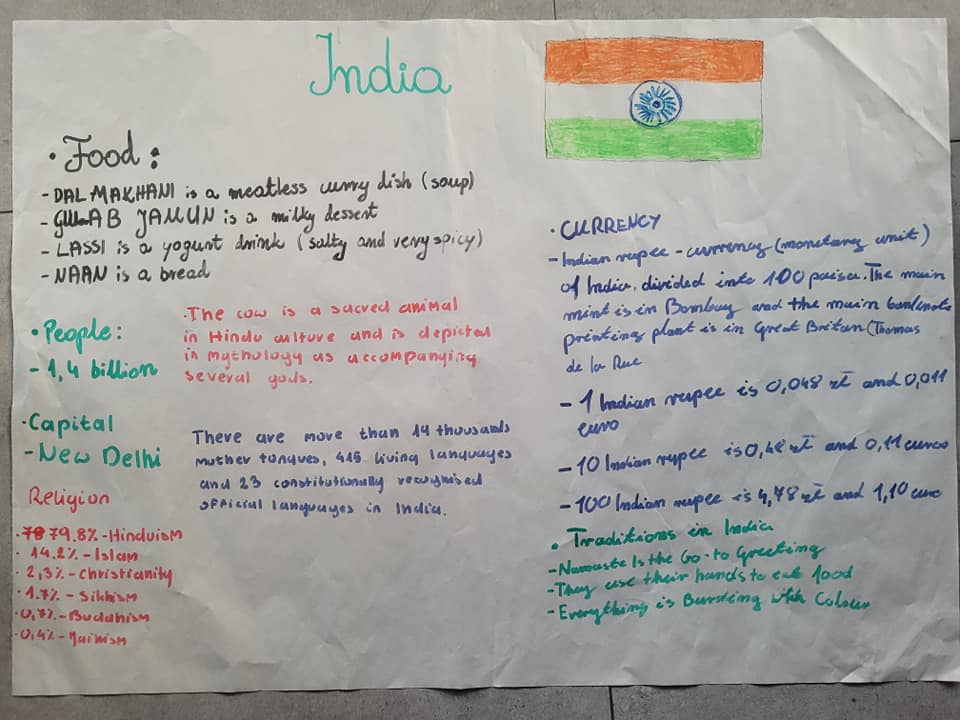 India
• Food :
- DAL MAKHANI is a meatless curry dish (soup)
- GULAB JAMUN is a milky dessert
- LASSI is a yogurt drink (salty and very spicy)
- NAAN is a bread
• People:
- 1,4 billion
• The cow is a sacred animal
in Hindu culture and is depicted
in mythology as accompanying
several gods.
• Capital
- New Delhi
There are more than 14 thousands
mother tongues, 415 living languages
and 23 constitutionally recognised
official languages in India.
Religion
• 79.8% - Hinduism
• 14.2% - Islam
• 2,3% - Christianity
• 1.7% - Sikhism
• 0,7% - Buddhism
• 0,4% - Jainism
• CURRENCY
- Indian rupee - currency (monetary unit)
of India, divided into 100 paisa. The main
mint is in Bombay and the main banknote
printing plant is in Great Britan (Thomas
de la Rue
- 1 Indian rupee is 0,048 zł and 0,011
euro
- 10 Indian rupee is 0,48 zł and 0,11 euro
- 100 Indian rupee is 4,78 zł and 1,10 euro
• Traditions in India
- Namaste Is the Go-to Greeting
- They use their hands to eat food
- Everything is Bursting With Colour